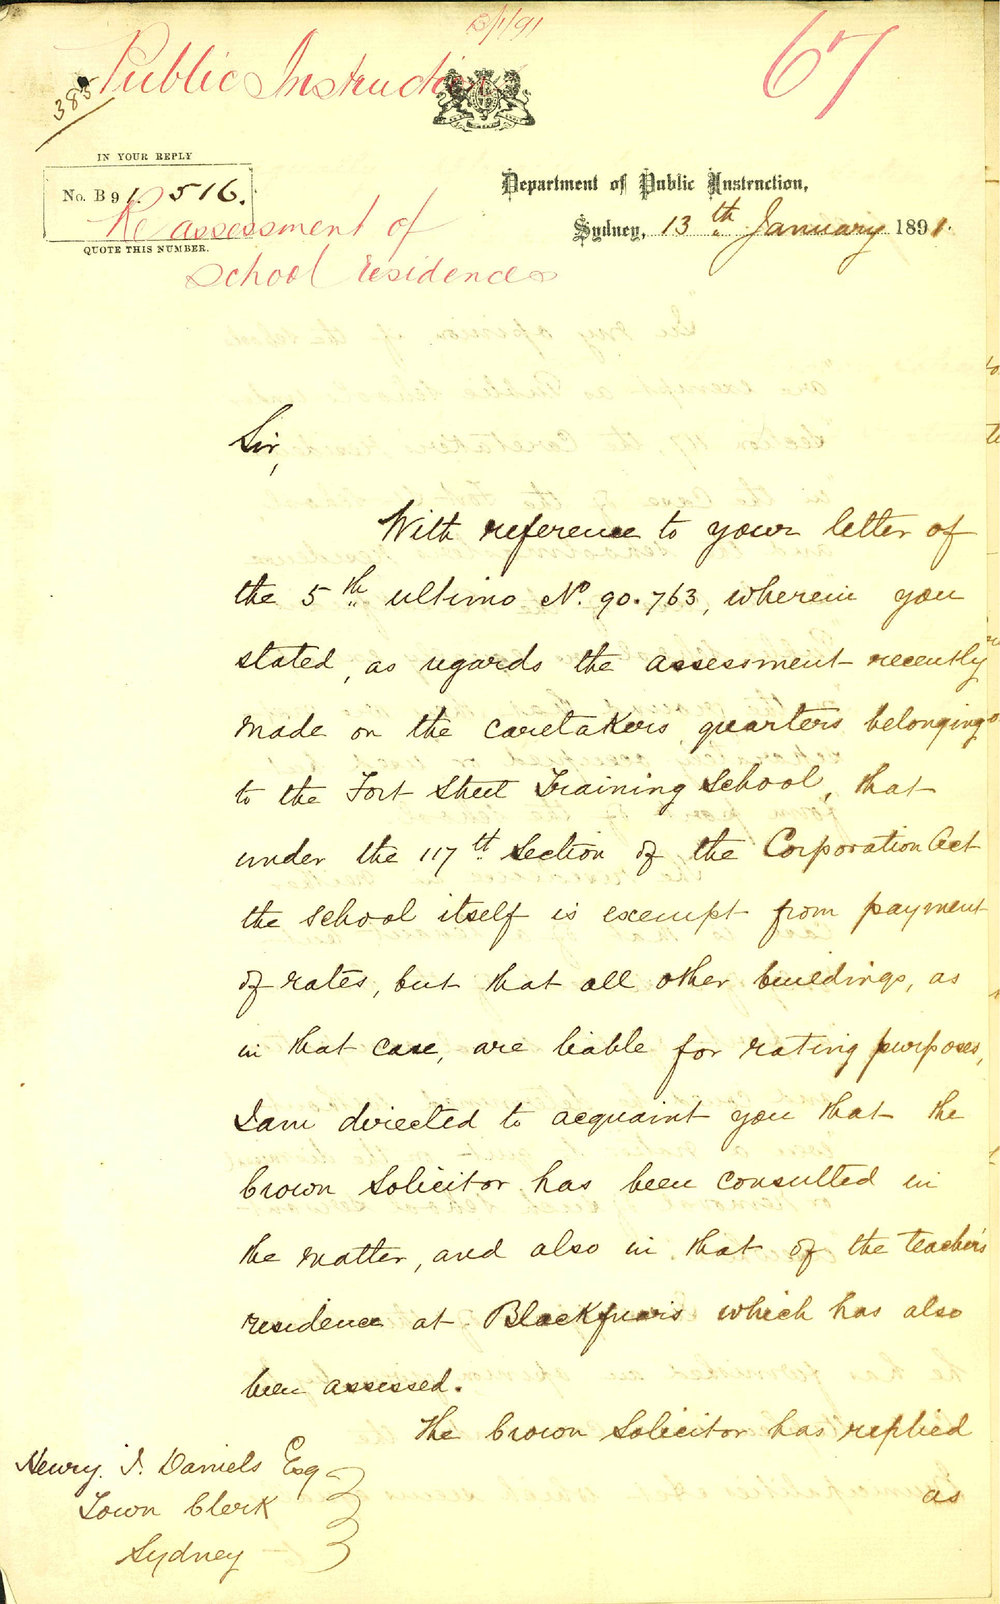 B/1/91
Public Instruction
67
385
IN YOUR REPLY
No. B 91/516.
QUOTE THIS NUMBER.
Re assessment of
School residences
Department of Public Instruction,
Sydney, 13th January 1891.
Sir,
With reference to your letter of
the 5th ultimo No. 90.763, wherein you
stated, as regards the assessment recently
made on the caretakers quarters belonging
to the Fort Street Training School, that
under the 117th Section of the Corporation Act
the school itself is exempt from payment
of rates, but that all other buildings, as
in that case, are liable for rating purposes,
I am directed to acquaint you that the
Crown Solicitor has been consulted in
the matter, and also in that of the teacher's
residence at Blackfriars which has also
been assessed.
The Crown Solicitor has replied
as
Henry. J. Daniels Esq
Town Clerk
Sydney